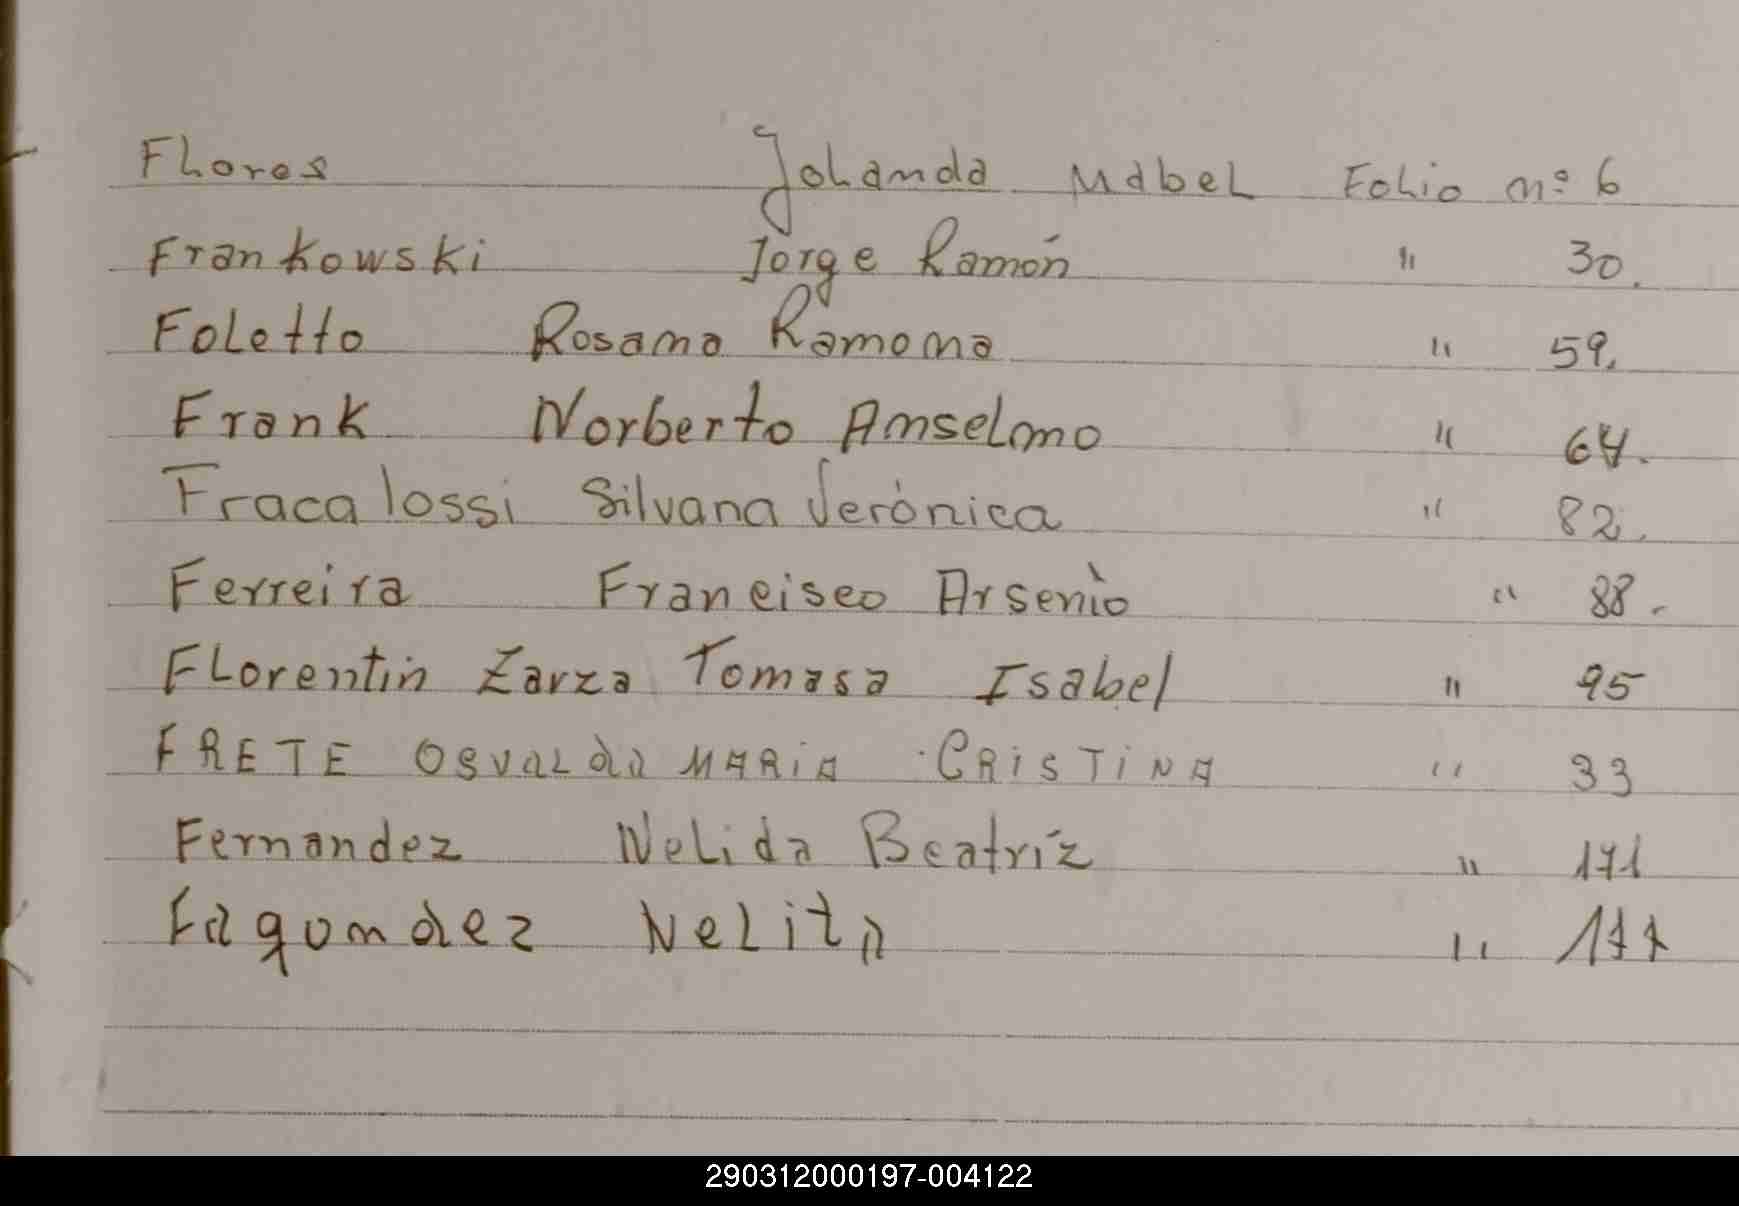 Flores Jolanda Mabel Folio nº 6
Frankowski Jorge Ramón " 30.
Foletto Rosana Ramona " 59.
Frank Norberto Anselmo " 64.
Fracalossi Silvana Verónica " 82.
Ferreira Francisco Arsenio " 88.
Florentin Zarza Tomasa Isabel " 95
FRETE OSVALDA MARIA CRISTINA " 33
Fernandez Nelida Beatríz " 171
Fagundez Nelita "
290312000197-004122